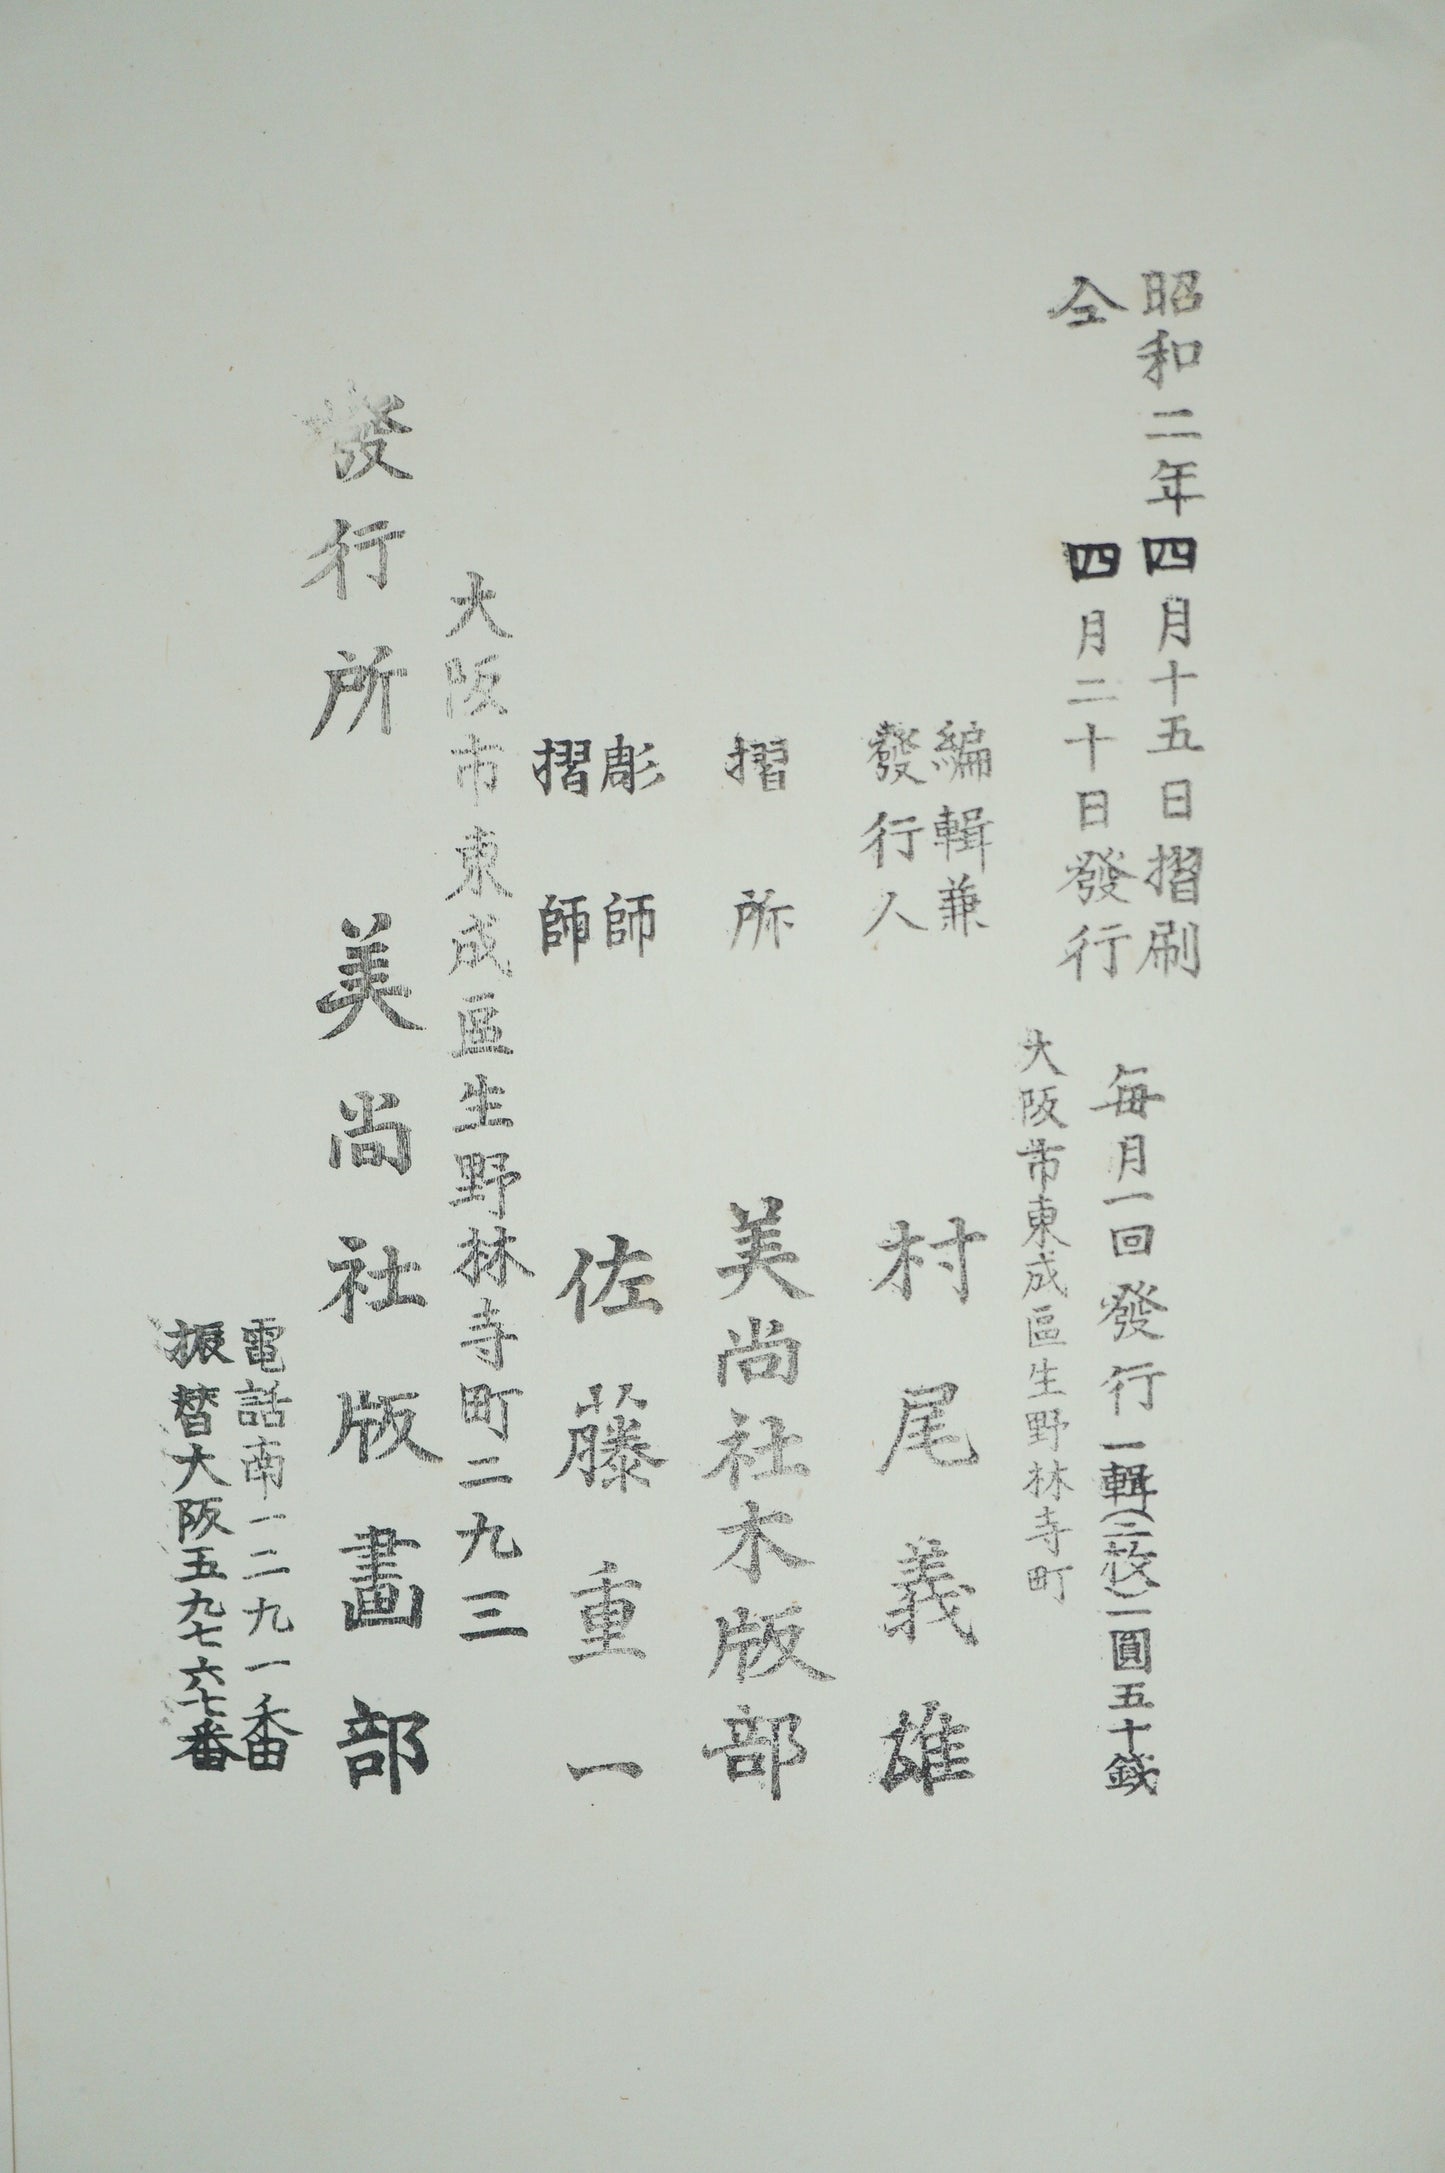 昭和二年四月十五日摺刷
仝　四月二十日發行
毎月一回發行一輯(二枚)一圓五十錢
大阪市東成區生野林寺町
編輯兼
發行人　村尾義雄
摺所　美尚社木版部
彫師
摺師　佐藤重一
大阪市東成區生野林寺町二九三
發行所　美尚社版畫部
電話南一二九一番
振替大阪五九七六七番